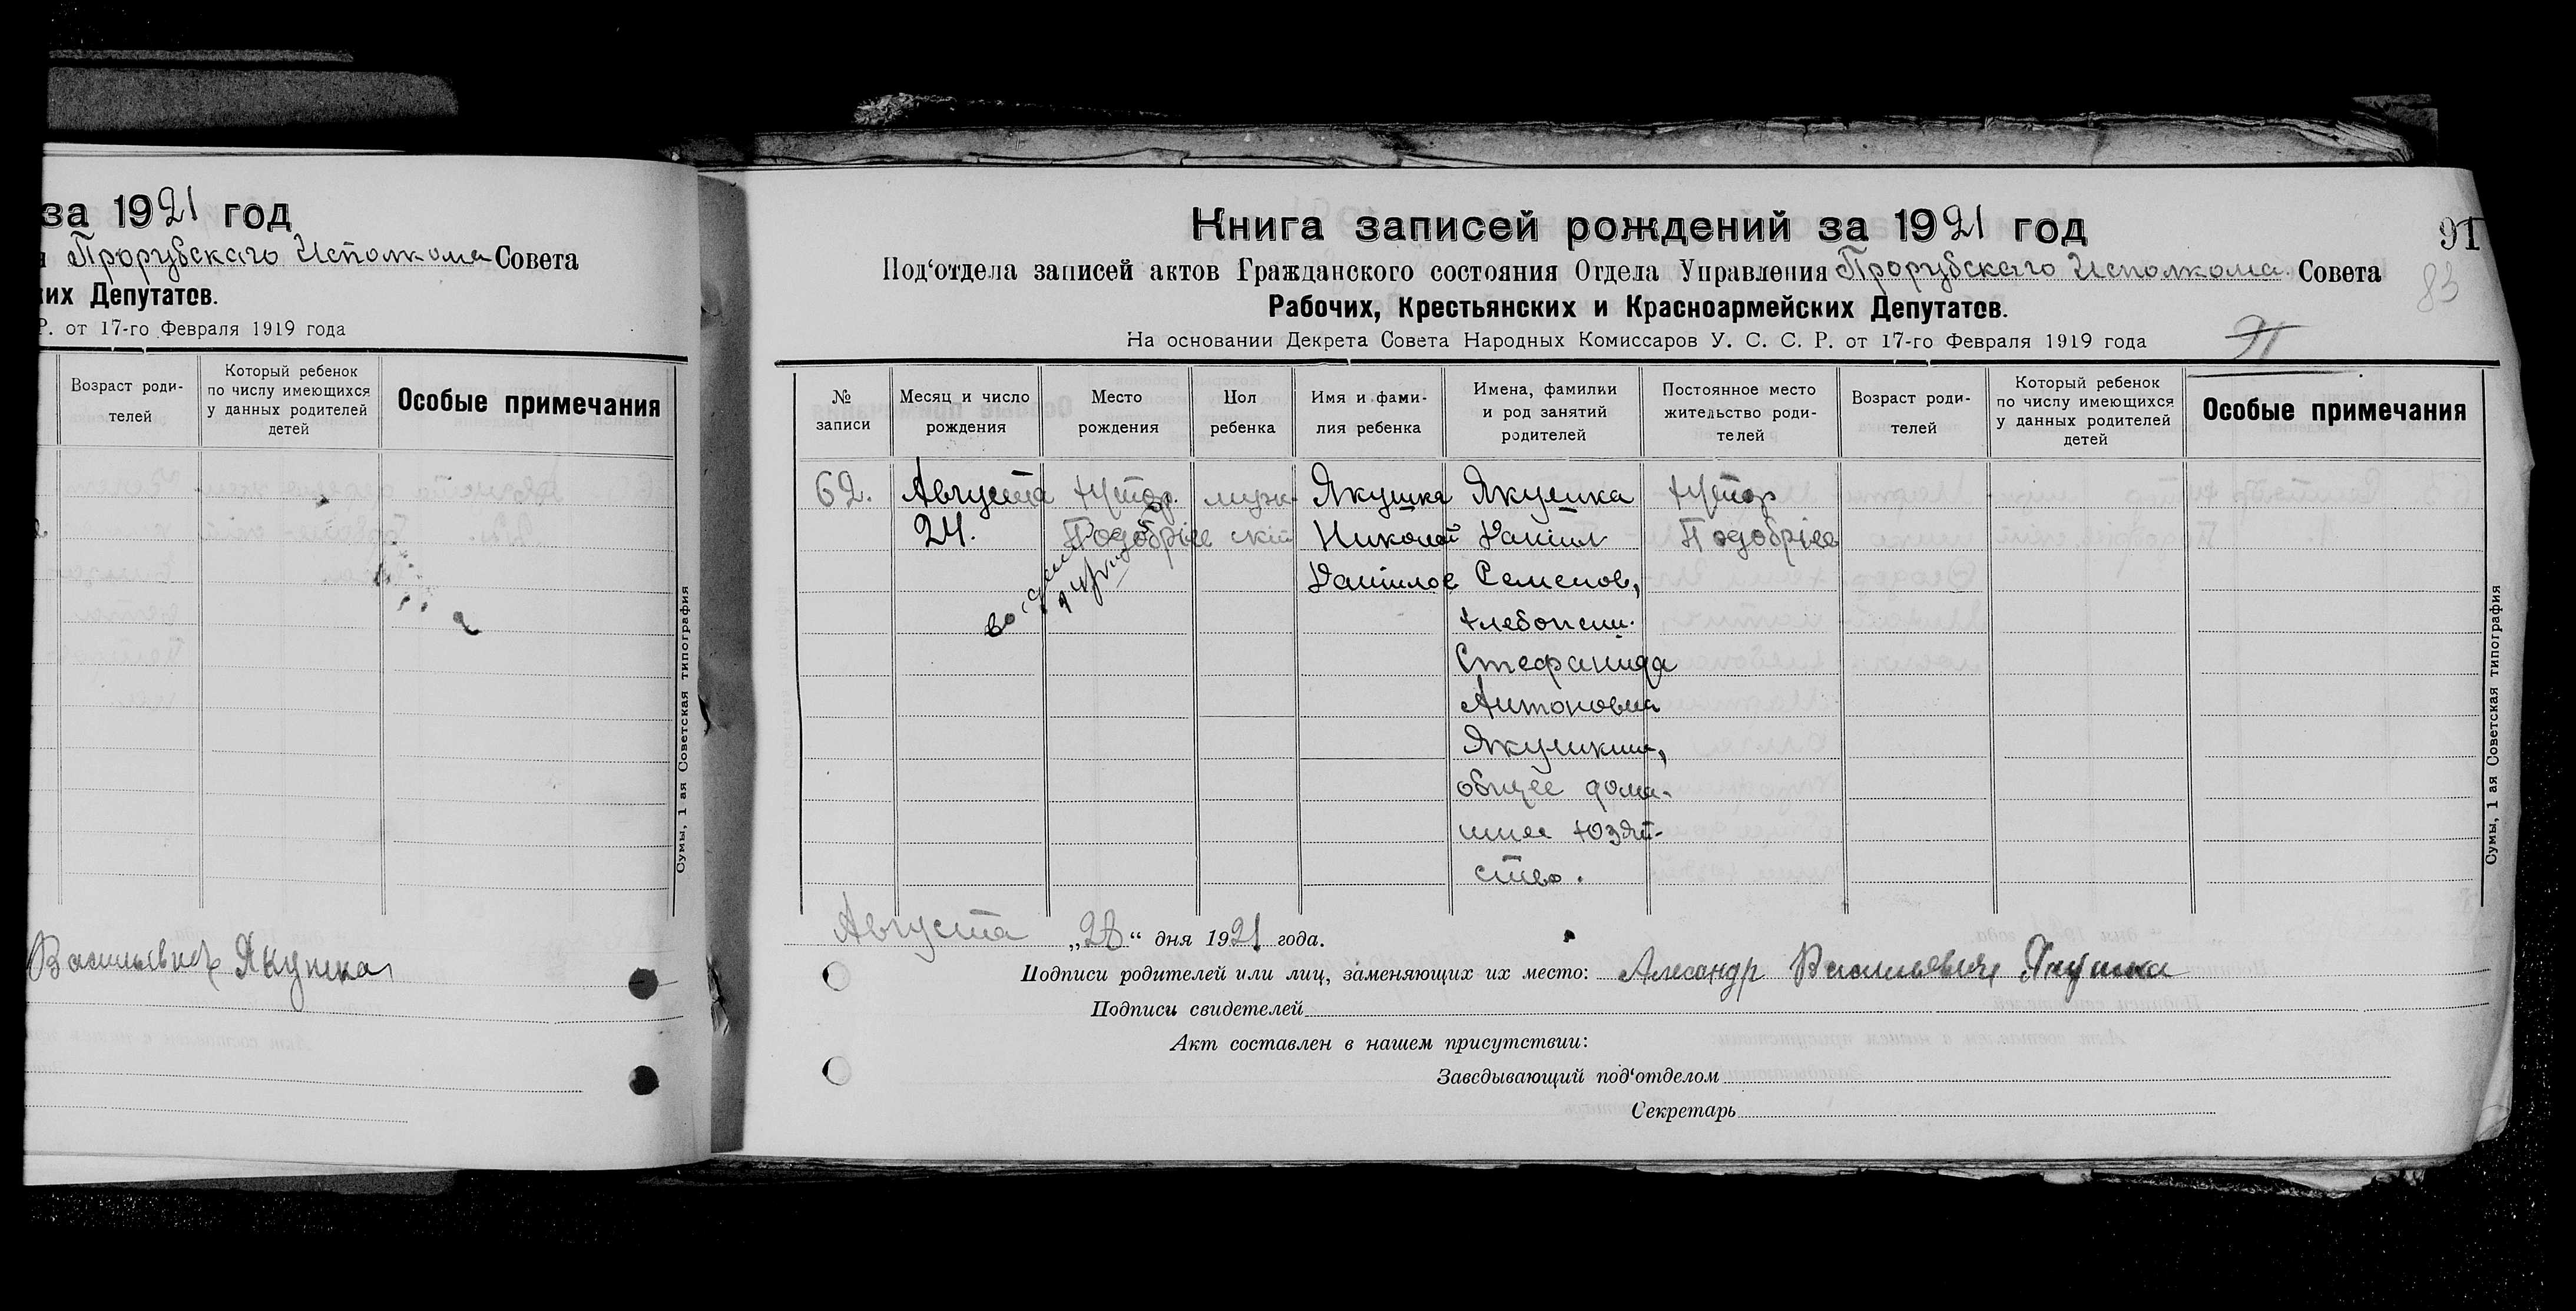 за 1921 год
Прорубскаго Исполкома Совета
их Депутатов.
Р. от 17-го Февраля 1919 года
Возраст роди-
телей
Который ребенок
по числу имеющихся
у данных родителей
детей
Особые примечания
Сумы, 1 ая Советская типография
Васильевич Якушка
Книга записей рождений за 1921 год
91
Под‘отдела записей актов Гражданского состояния Отдела Управления Прорубскаго Исполкома Совета
83
Рабочих, Крестьянских и Красноармейских Депутатов.
На основании Декрета Совета Народных Комиссаров У. С. С. Р. от 17-го Февраля 1919 года
91
№
записи
Месяц и число
рождения
Место
рождения
Пол
ребенка
Имя и фами-
лия ребенка
Имена, фамилии
и род занятий
родителей
Постоянное место
жительство роди-
телей
Возраст роди-
телей
Который ребенок
по числу имеющихся
у данных родителей
детей
Особые примечания
62.
Августа
24.
Хутор.
Подобріе
муж-
скій
Якушка
Николай
Данілов
Якушка
Даніил
Семенов,
хлебопаш.
Стефанида
Антоновна
Якушкина,
общее дома-
шнее хозяй-
ство.
Хутор
Подобріев
Сумы, 1 ая Советская типография
Августа „28“ дня 1921 года.
Подписи родителей или лиц, заменяющих их место: Алесандр Васильевич Якушка
Подписи свидетелей
Акт составлен в нашем присутствии:
Заведывающий под‘отделом
Секретарь